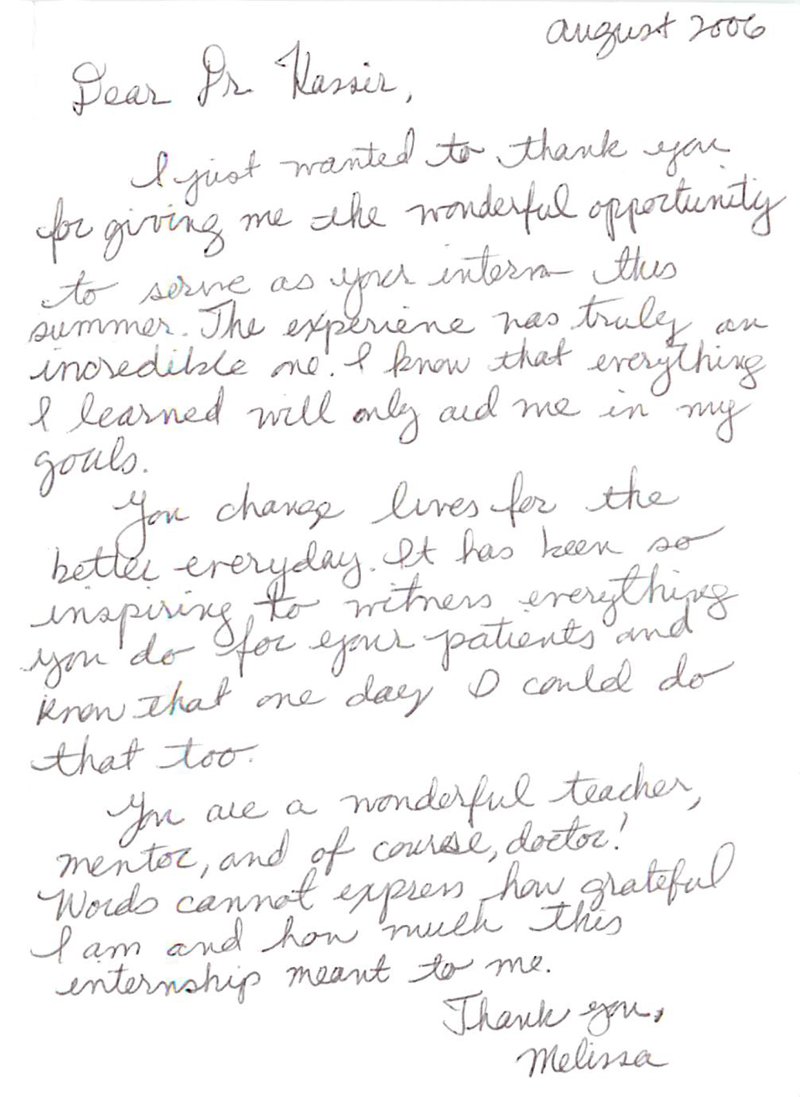 august 2006
Dear Dr. Kassir,
I just wanted to thank you
for giving me the wonderful opportunity
to serve as your intern this
summer. The experience was truly an
incredible one. I know that everything
I learned will only aid me in my
goals.
You change lives for the
better everyday. It has been so
inspiring to witness everything
you do for your patients and
know that one day I could do
that too.
You are a wonderful teacher,
mentor, and of course, doctor!
Words cannot express how grateful
I am and how much this
internship meant to me.
Thank you,
Melissa